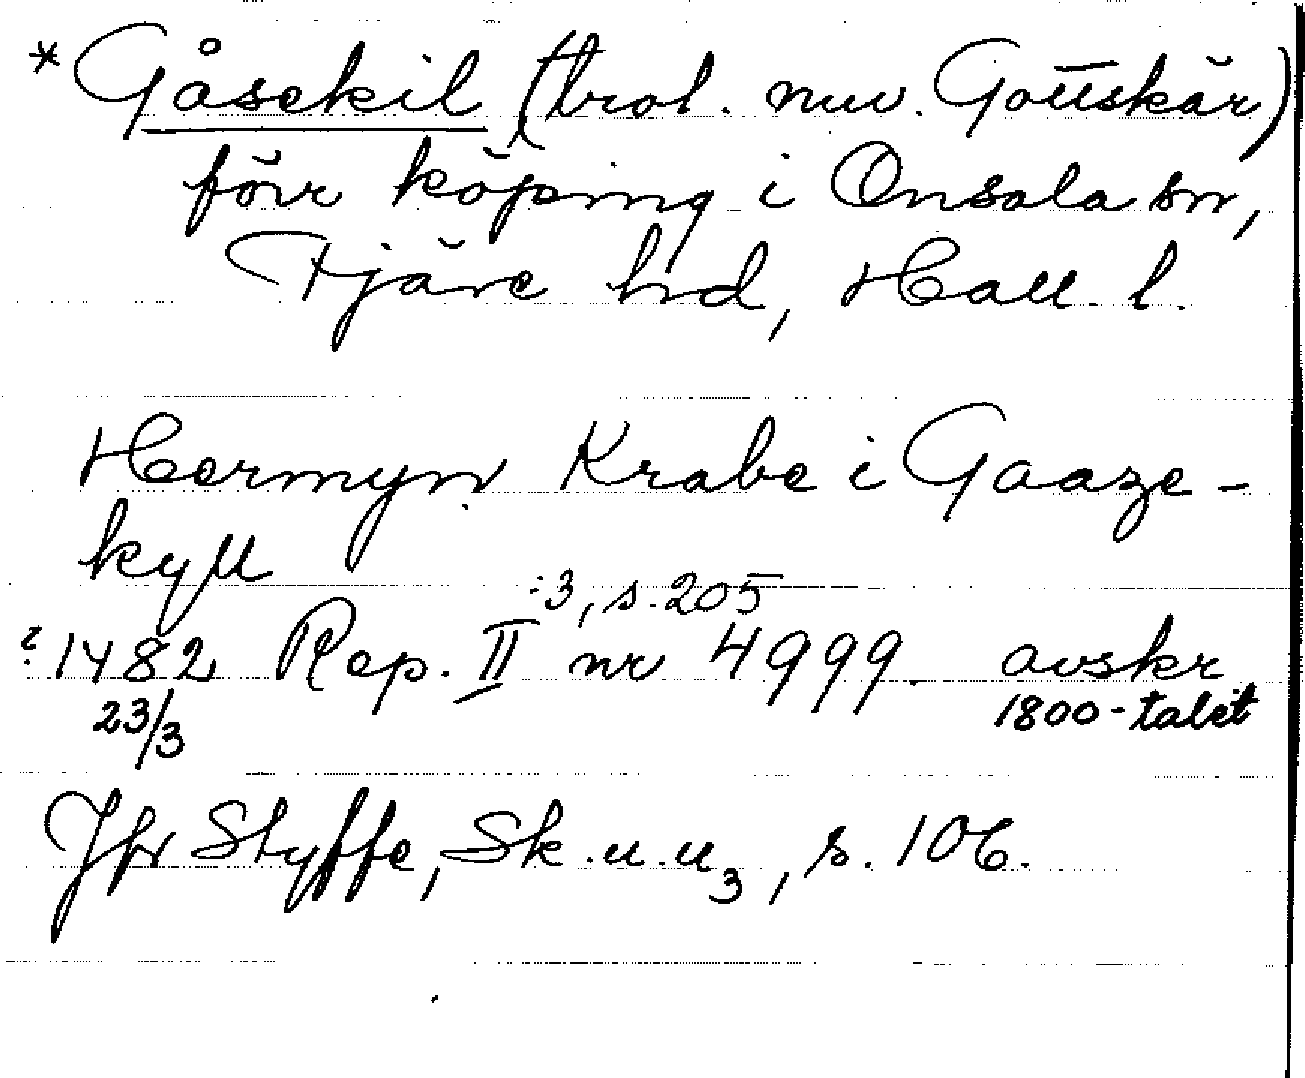 * Gåsekil (trol. nuv. Gottskär)
förr köping i Onsala sn,
Fjäre hd, Hall. l.
Hermyn Krabe i Gaaze-
kyll
:3, s. 205
? 1482 Rep. II nr 4999. avskr
23/3 1800-talet
Jfr Styffe, Sk. u. u 3, s. 106.